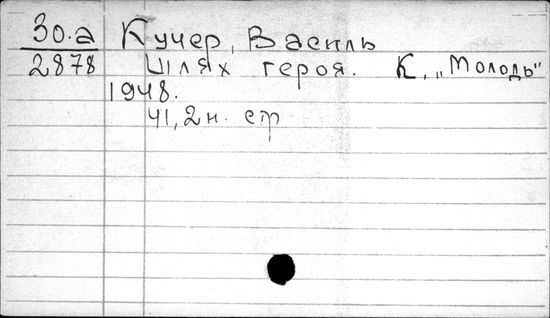 30.а Кучер, Василь
2878 Шлях героя. К, „Молодь"
1948.
41, 2 н. стр